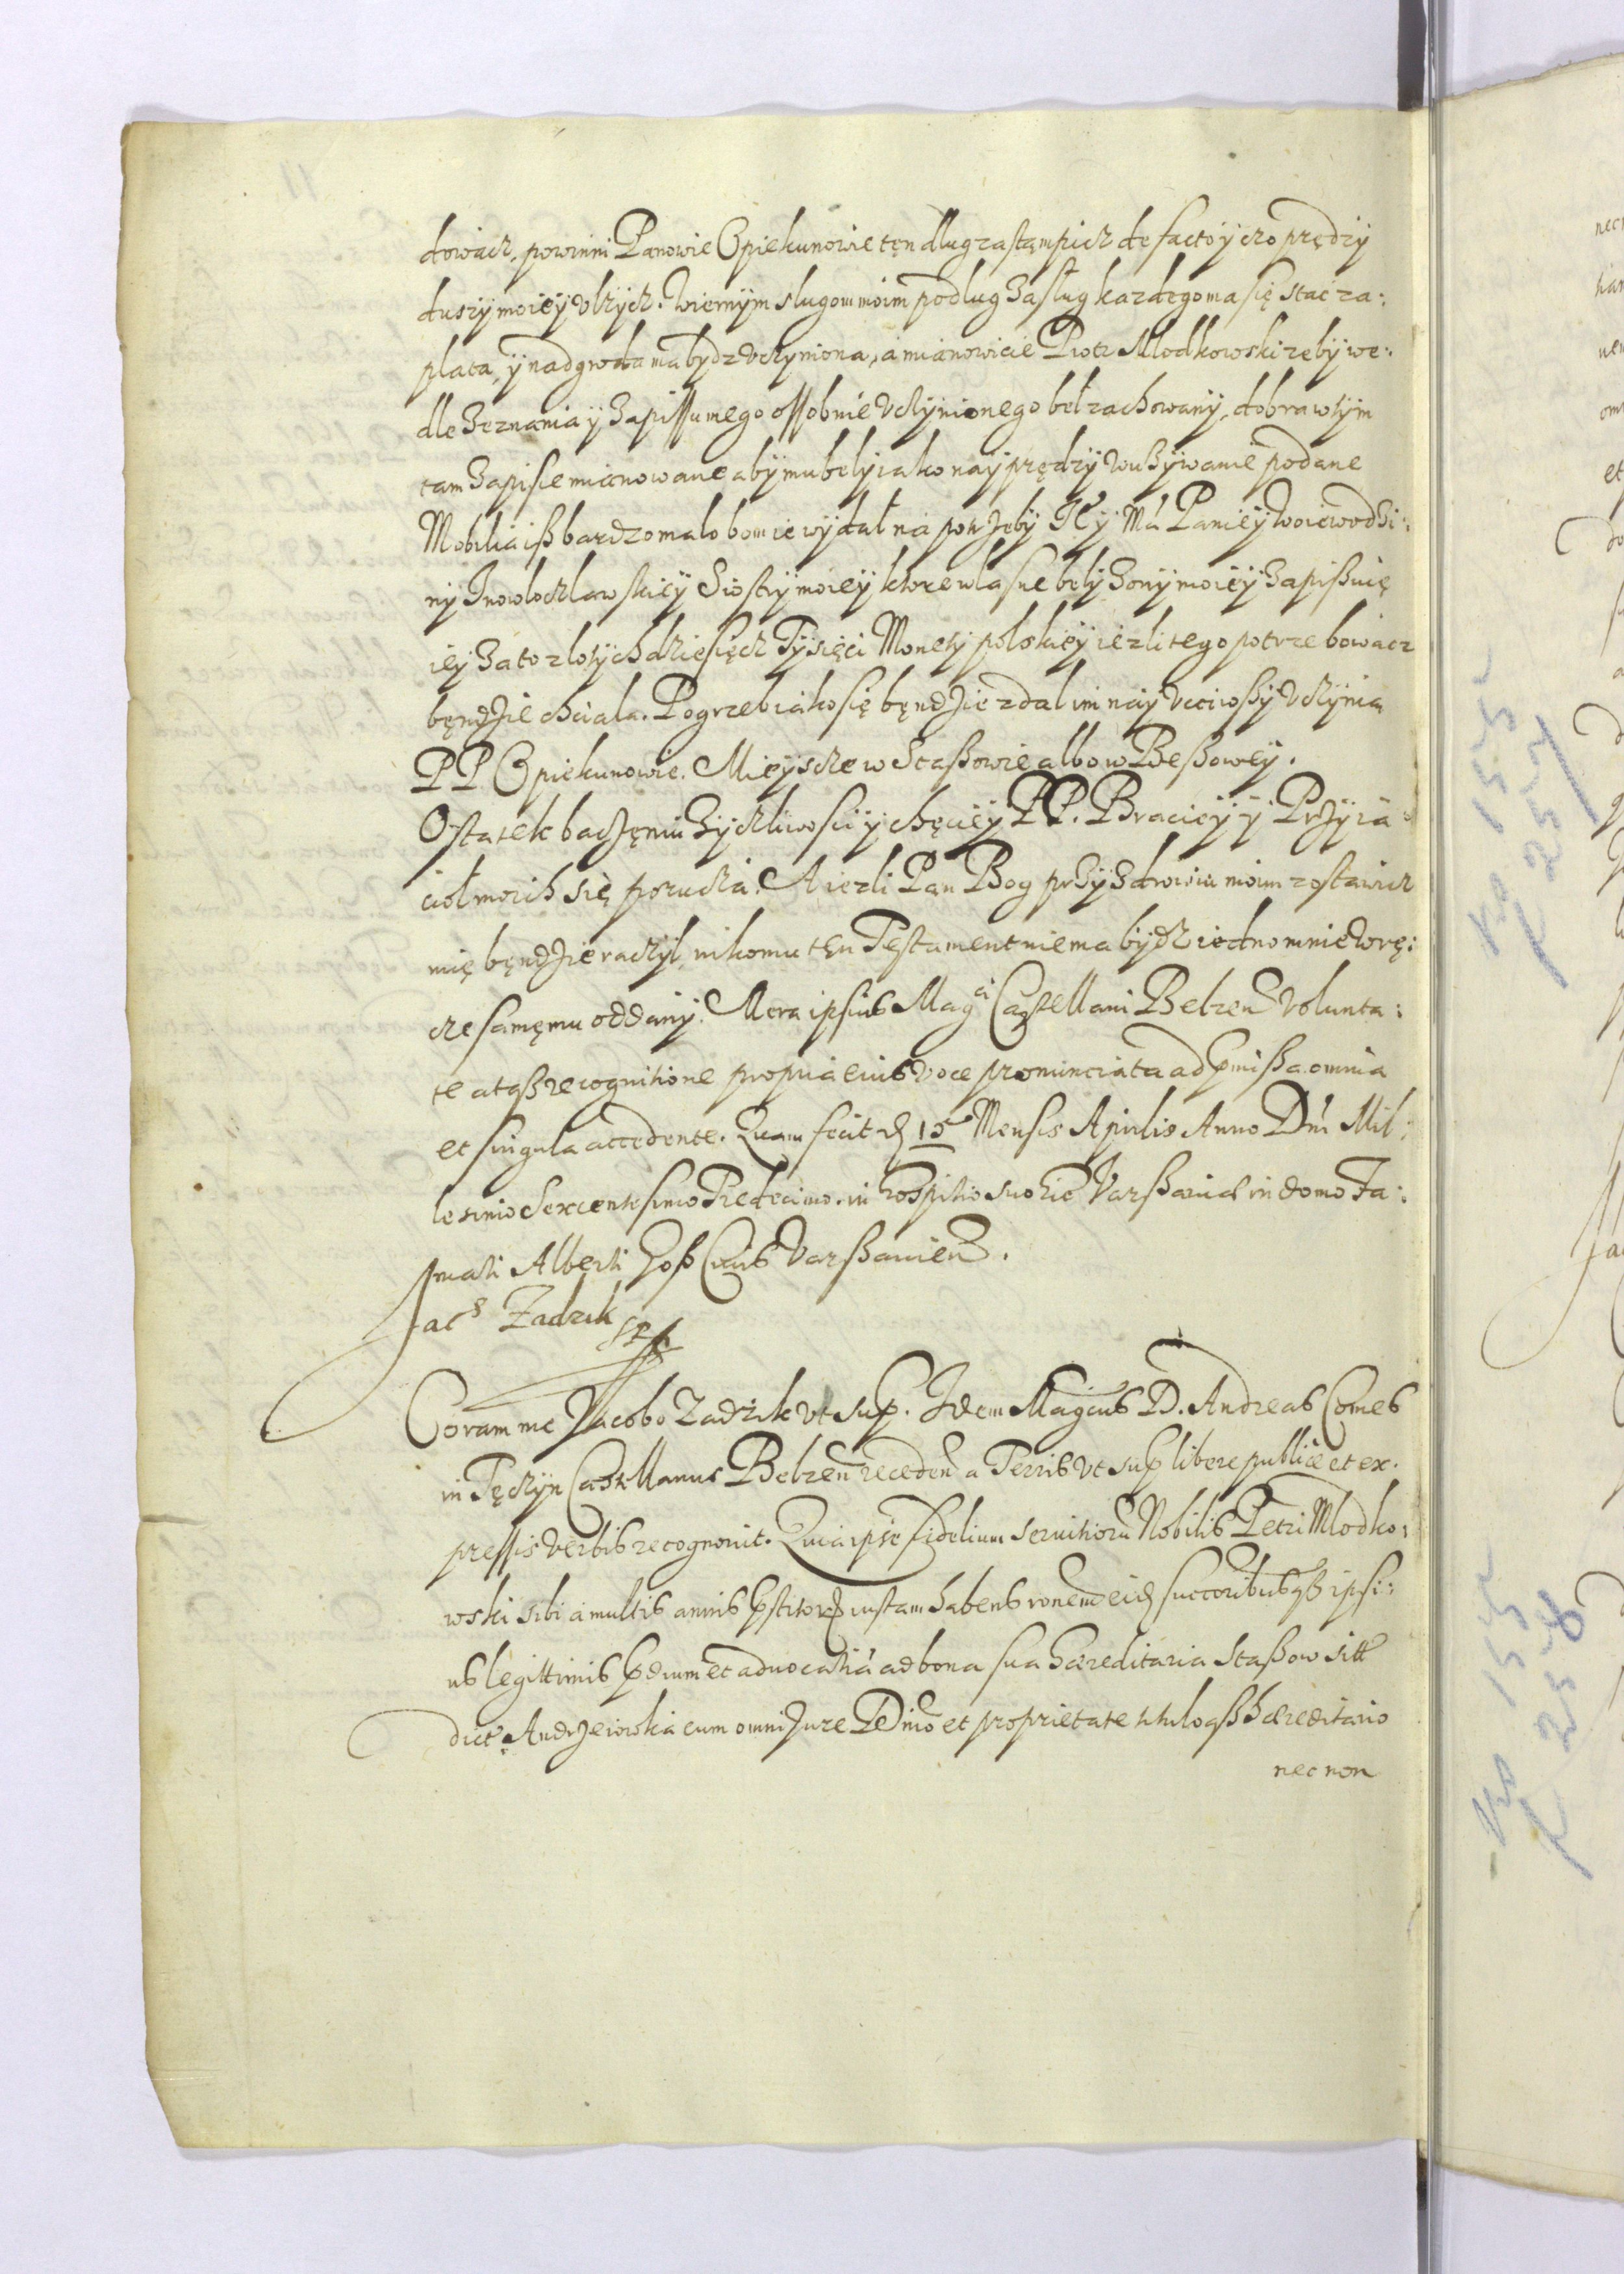 dowacz, powinni Panowie Opiekunowie tęn dlug zastąmpicz de facto ÿ czo prędzÿ
duszÿ moieÿ vlzÿcz. Wiernÿm slugom moim podlug Zaslug kazdego ma się stać za:
plata, ÿ nadgroda ma bÿdz vczÿniona, a mianowicie Piotr Mlodkowski zebÿ we:
dle Zeznania ÿ Zapissu mego ossobnie vczÿnionego beł zachowanÿ, dobra w tÿm
tam Zapisie mianowane abÿ mu belÿ iako naÿprędzÿ w uZÿwanie podane
Mobilia iß bardzo malo bom ie wÿdał na potrzebÿ Jeÿ Mći Panieÿ Woiewodzi:
nÿ Inowloczlawskieÿ Siostrÿ moieÿ ktore wlasne belÿ Zonÿ moieÿ Zapißuię
ieÿ Za to zlotÿch dziesięcz Tÿsięci Monetÿ polskieÿ iezli tego potrzebowacz
będzie chciala. Pogrzeb iako się będzie zdal im naÿ vcciwssÿ vczÿnią
PP Opiekunowie. Mieÿscze w Staßowie albo w Beßoweÿ.
Ostatek baczęniu Zÿczliwosci ÿ chęcieÿ PP. Bracieÿ ÿ Przÿia:
ciół moich się porucza. A iezli Pan Bog przÿ Zdrowiu moim zostawicz
mię będzie raczÿł, nikomu tęn Testament niema bÿdz iedno mnie w rę:
cze samęmu oddanÿ. Mera ipsius Magci Castellani Belzeñ Volunta:
te atqß recognitione propria eius voce pronunciata ad pmissa omnia
et singula accedente. Quam fecit d 15 Mensis Aprilis Anno Dni Mil:
lesimo Sexcentesimo Tredecimo. in hospitio suo hic Varßaviæ in domo Fa:
mati Alberti Hoß Civis Varßavien.
Jacs Zadzik
Coram me Jacobo Zadzik vt sup. Idem Magcus D. Andreas Comes
in Tęczÿn Castellanus Belzeñ recedeñ a Terris vt sup libere publice et ex.
pressis verbis recognovit. Quia ipse fidelium servitioru Nobilis Petri Mlodko:
wski sibi a multis annis pstitor iustam habens ronem eid succoribusqß ipsi:
us legittimis pdium et advocatia ad bona sua hæreditaria Staßow sitt
dict Andrzeiowska cum omni Jure Dnio et proprietate tituloqß hæreditario
nec non